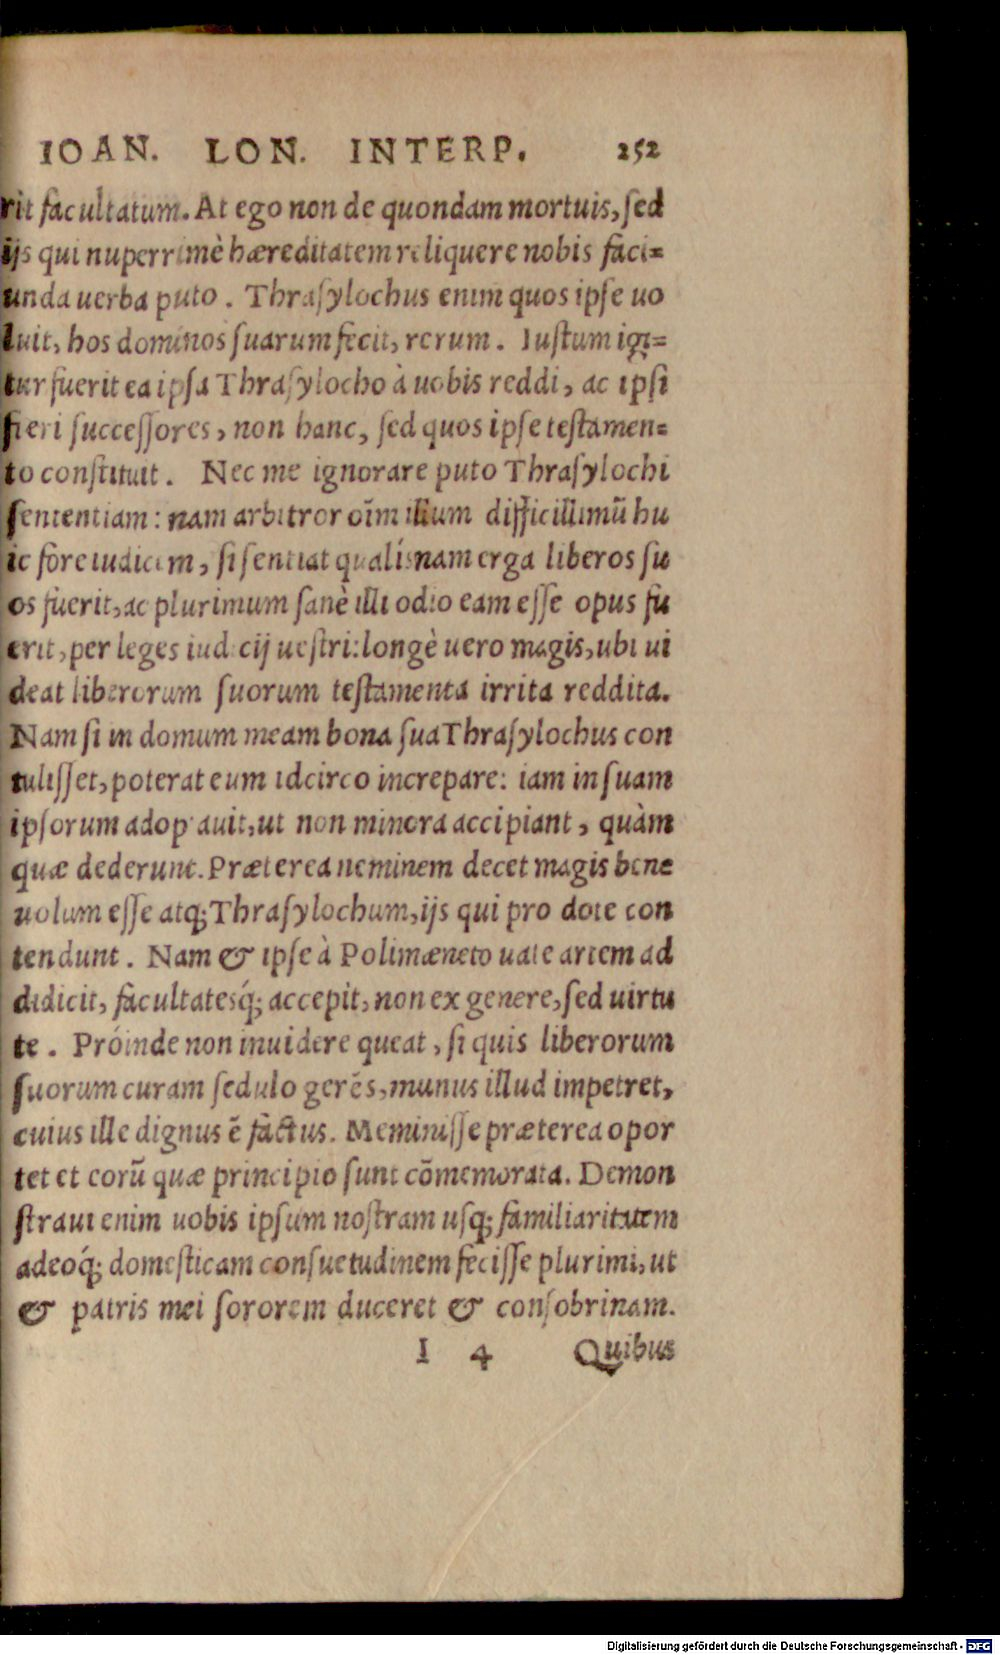 IOAN. LON. INTERP. 252
rit facultatum. At ego non de quondam mortuis, ſed
ijs qui nuperrimè hæreditatem reliquere nobis faci=
unda uerba puto. Thraſylochus enim quos ipſe uo
luit, hos dominos ſuarum fecit, rerum. Iuſtum igi=
tur fuerit ea ipſa Thraſylocho à uobis reddi, ac ipſi
fieri ſucceſſores, non hanc, ſed quos ipſe teſtamen=
to conſtituit. Nec me ignorare puto Thraſylochi
ſententiam: nam arbitror oīm illum difficillimū hu
ic fore iudicem, ſi ſentiat qualíſnam erga liberos ſu
os fuerit, ac plurimum ſanè illi odio eam eſſe opus fu
erit, per leges iudicij ueſtri: longè uero magis, ubi ui
deat liberorum ſuorum teſtamenta irrita reddita.
Nam ſi in domum meam bona ſua Thraſylochus con
tuliſſet, poterat eum idcirco increpare: iam in ſuam
ipſorum adoptauit, ut non minora accipiant, quàm
quæ dederunt. Præterea neminem decet magis bene
uolum eſſe atq; Thraſylochum, ijs qui pro dote con
tendunt. Nam & ipſe à Polimæneto uate artem ad
didicit, facultateſq́; accepit, non ex genere, ſed uirtu
te. Próinde non inuidere queat, ſi quis liberorum
ſuorum curam ſedulo gerēs, munus illud impetret,
cuius ille dignus ē factus. Meminiſſe præterea opor
tet et eorū quæ principio ſunt cōmemorata. Demon
ſtraui enim uobis ipſum noſtram uſq; familiaritatem
adeoq́; domeſticam conſuetudinem feciſſe plurimi, ut
& patris mei ſororem duceret & conſobrinam.
I 4 Quibus
Digitalisierung gefördert durch die Deutsche Forschungsgemeinschaft - DFG